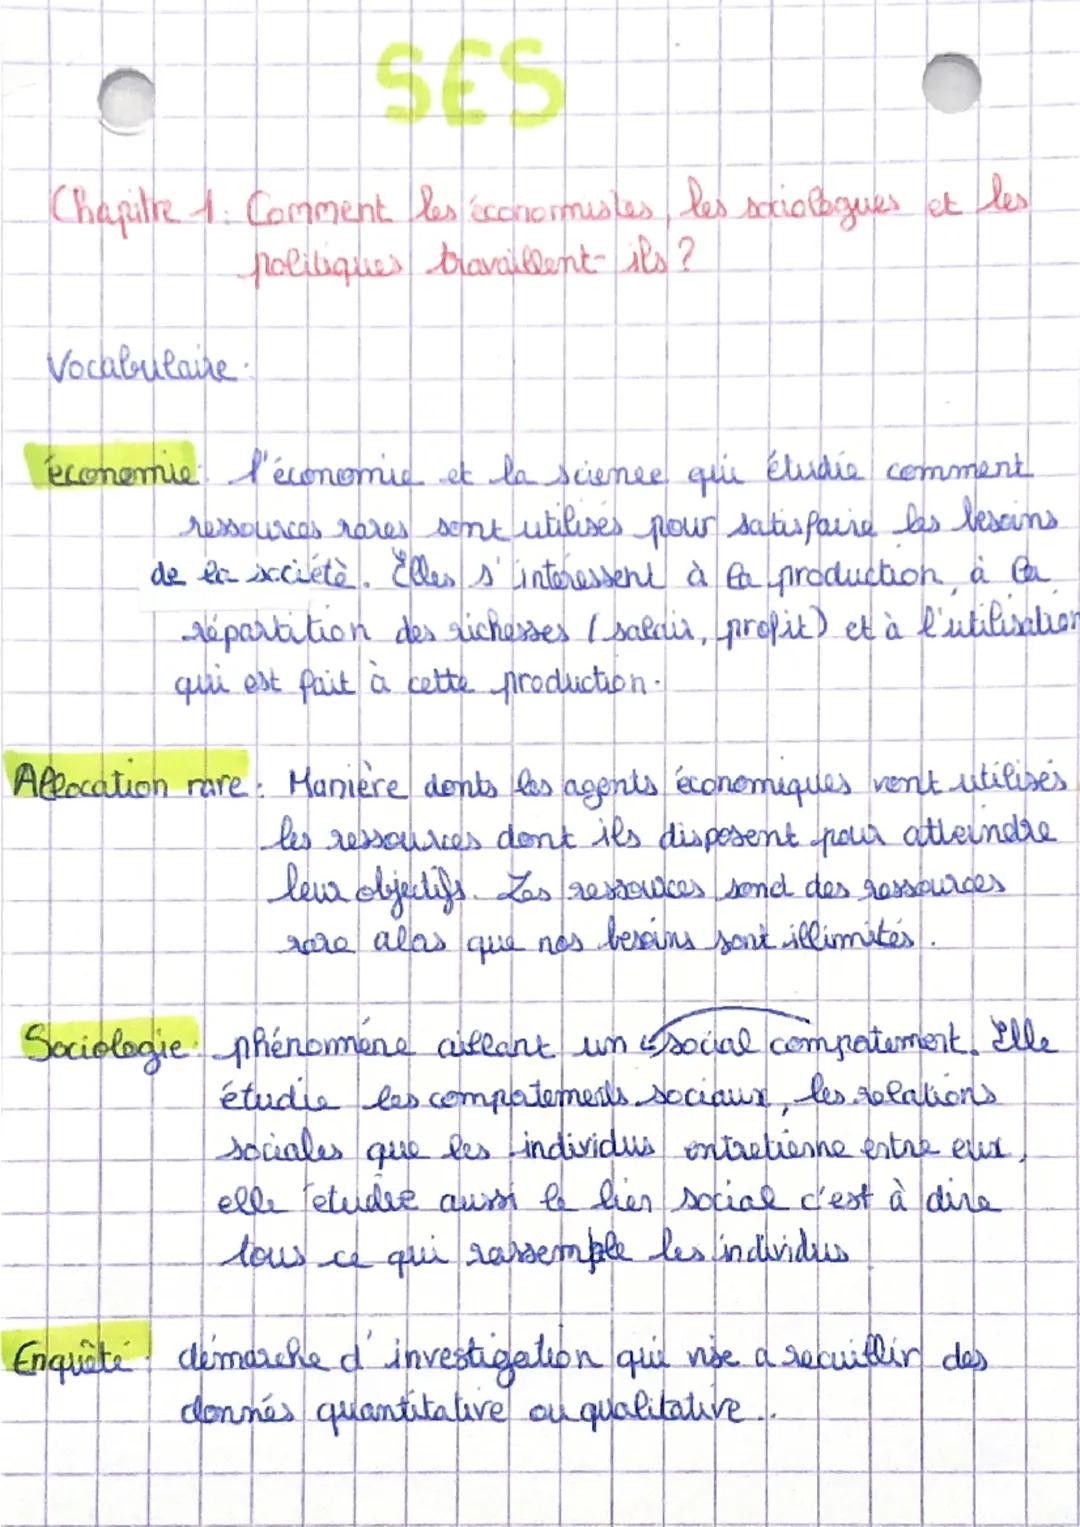 SES
Chapitre 1: Comment les économistes, les sociologues et les
politiques travaillent-ils ?
Vocabulaire :
économie : l'économie et la science qui étudie comment
ressources rares sont utilisés pour satisfaire les besoins
de la société. Elles s'intéressent à la production, à la
répartition des richesses (salair, profit) et à l'utilisation
qui est fait à cette production.
Allocation rare : Manière donts les agents économiques vont utilisés
les ressources dont ils disposent pour atteindre
leur objectifs. Les ressources sond des ressources
rare alas que nos besoins sont illimités.
Sociologie : phénomène aillant un social compatement. Elle
étudie les compatements sociaux, les relations
sociales que les individus entretienne entre eux,
elle étudie aussi le lien social c'est à dire
tous ce qui rassemble les individus
Enquêté : démarche d'investigation qui vise a recuillir des
donnés quantitative ou qualitative..